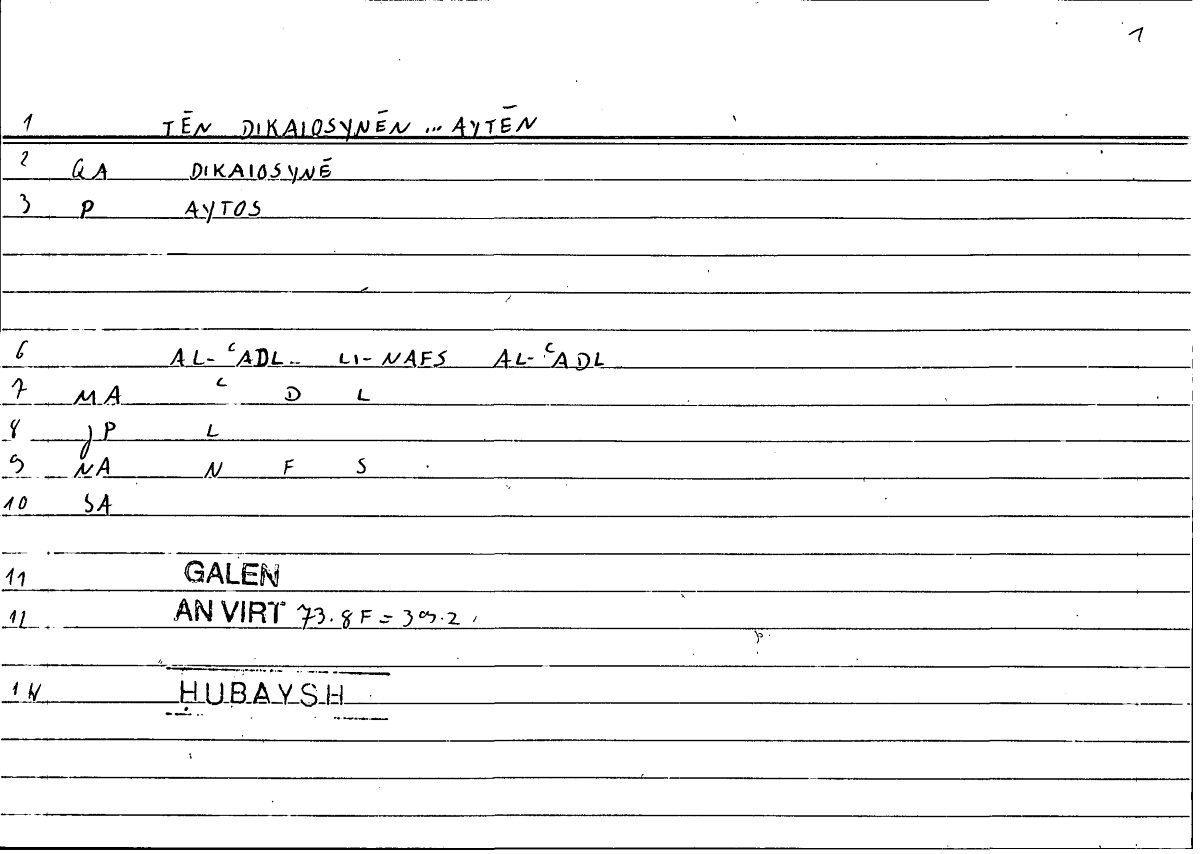 1
1 TĒN DIKAIOSYNĒN ... AYTĒN
2 QA DIKAIOSYNĒ
3 P AYTOS
6 AL-ʿADL.. LI-NAFS AL-ʿADL
7 MA ʿ D L
8 jP L
9 NA N F S
10 SA
11 GALEN
12 AN VIRT 73.8 F = 39.2
14 ḤUBAYSH